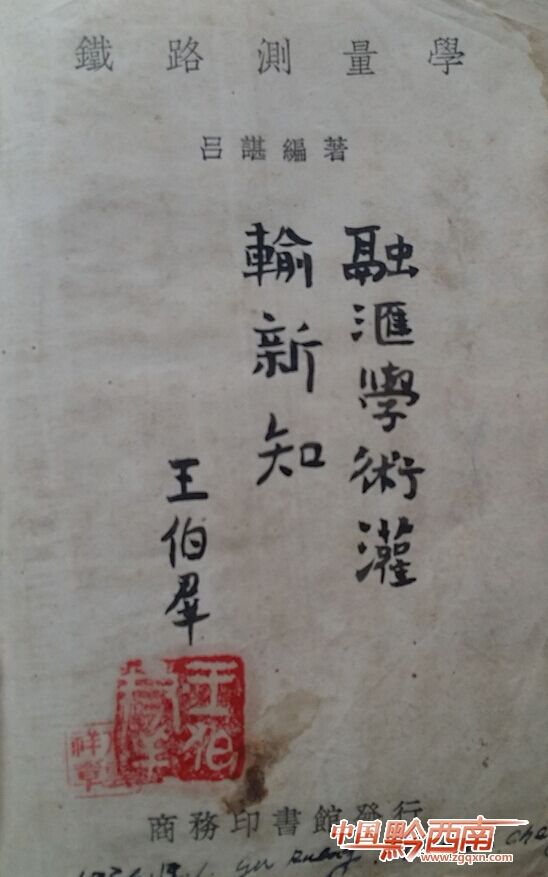 鐵路測量學
呂諶編著
融滙學術灌
輸新知
王伯羣
王伯
羣
祥
章
商務印書館發行
中国黔西南
www.zgqxn.com